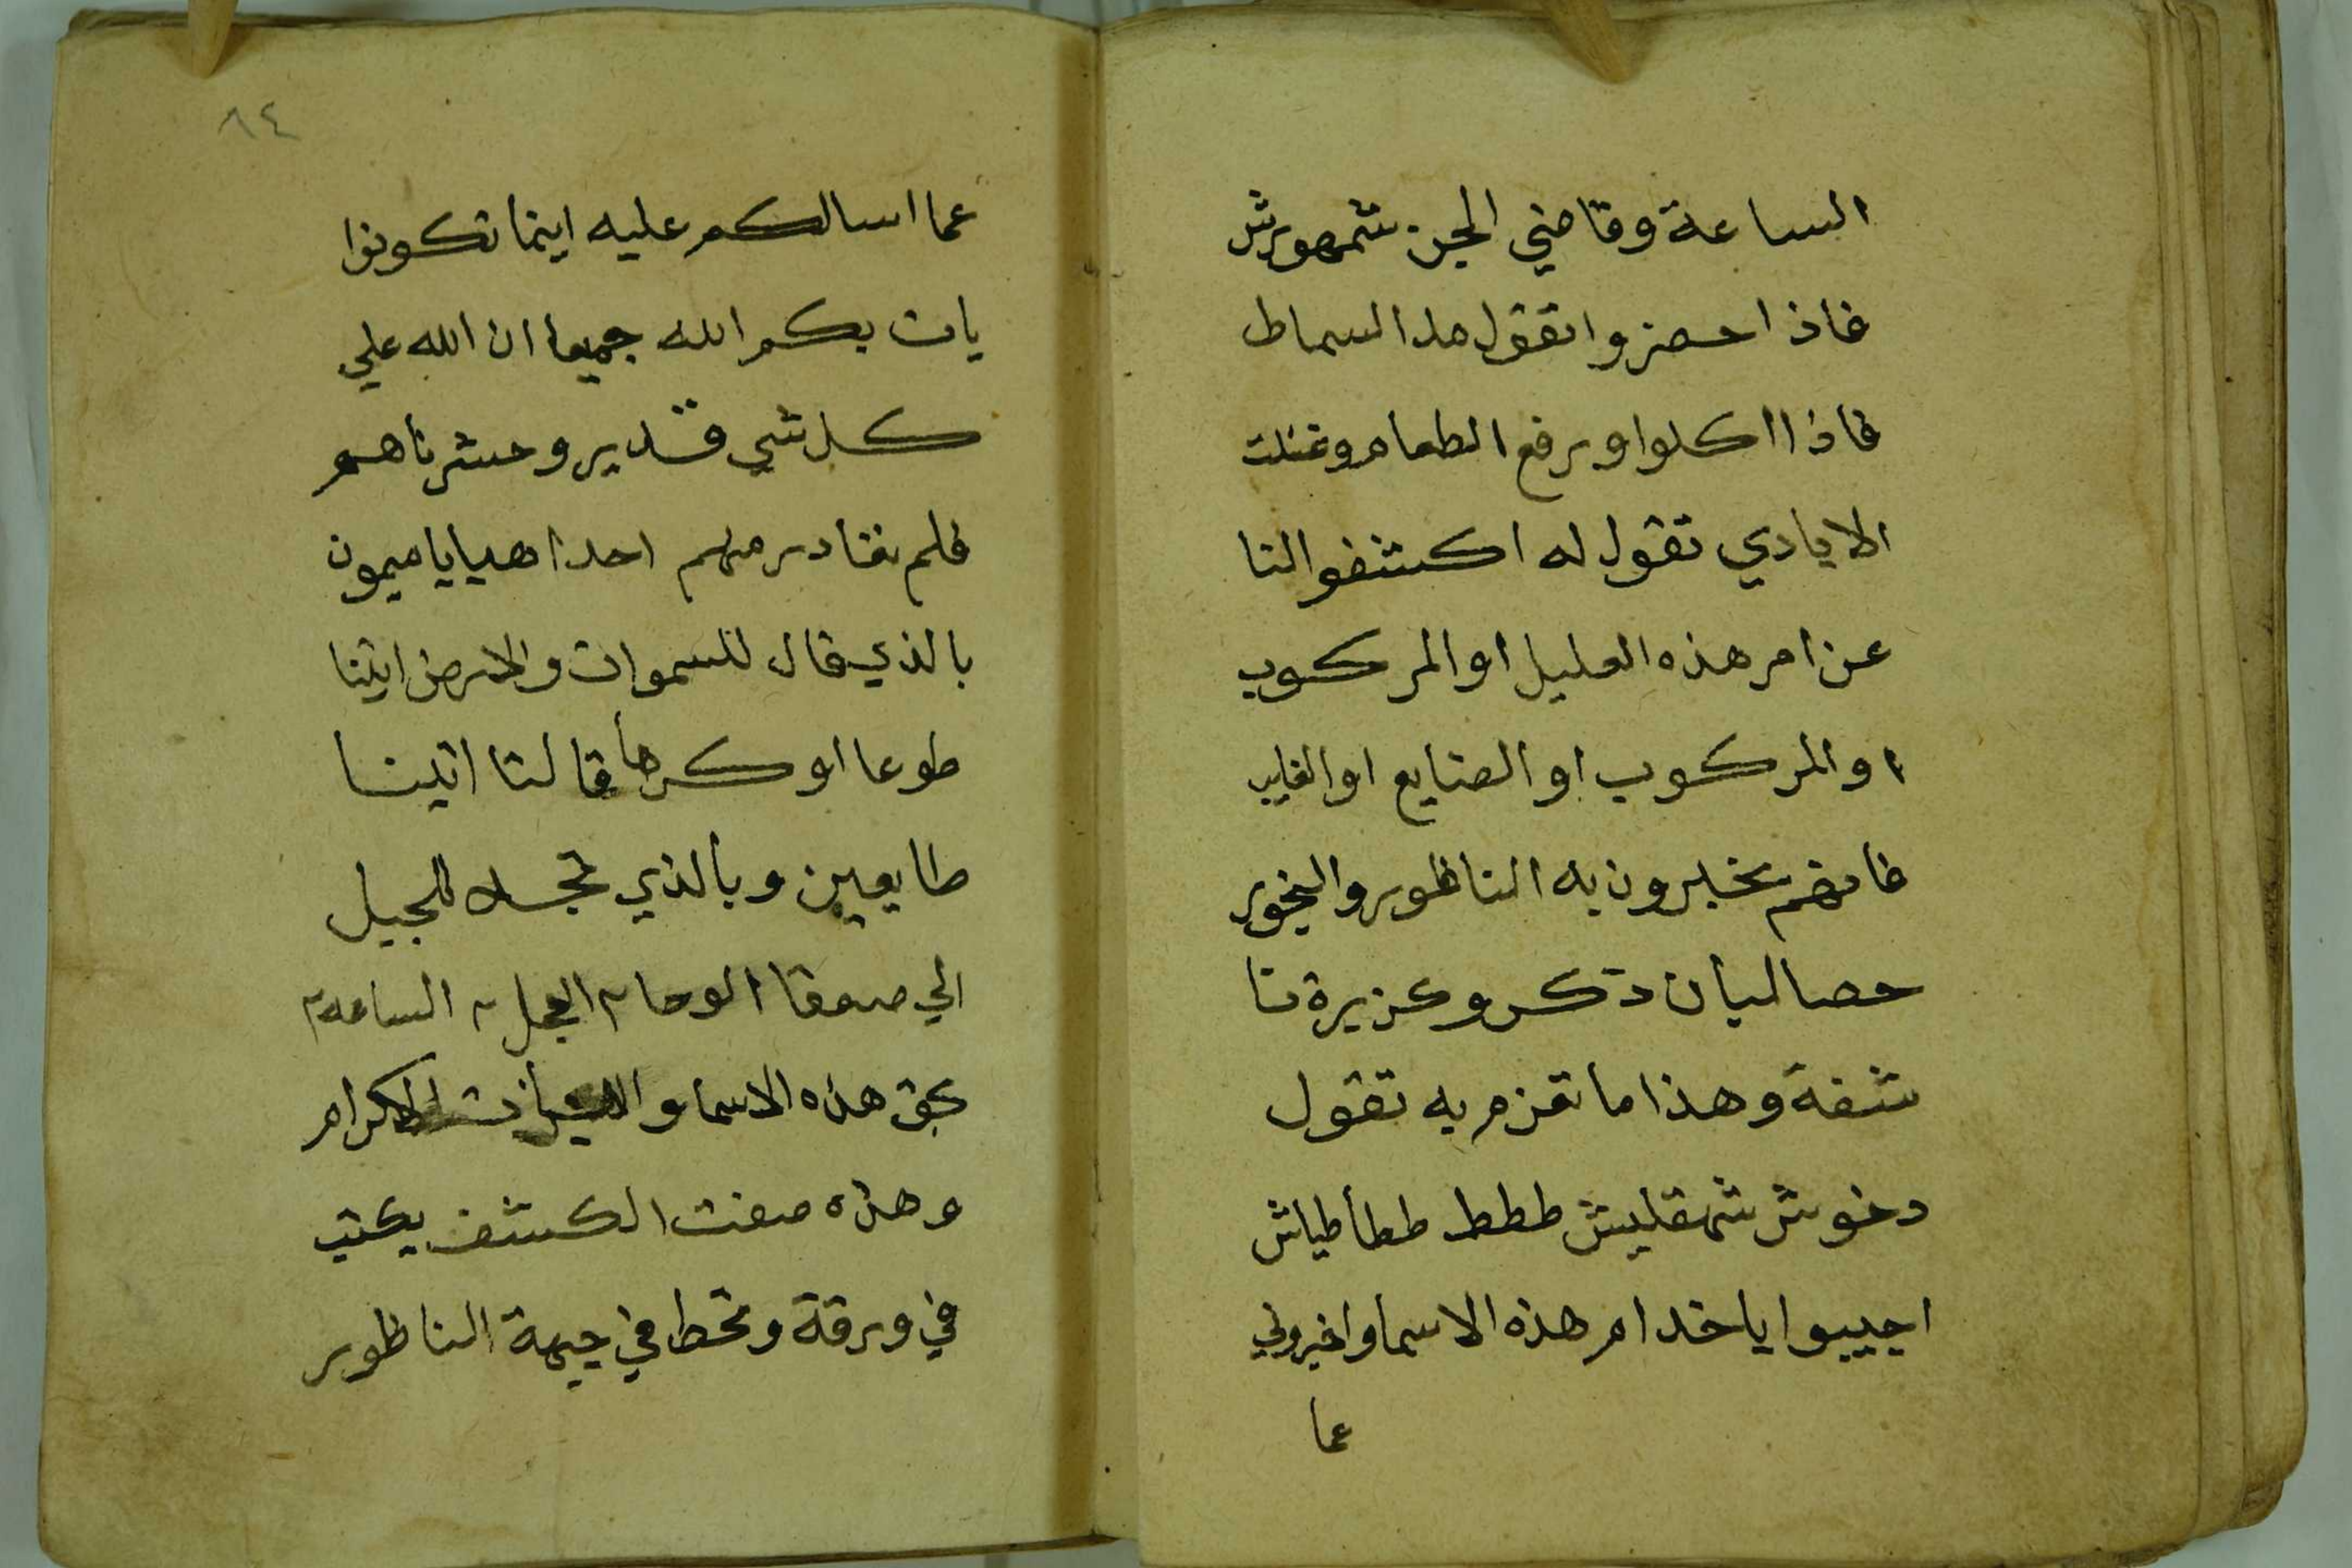 الساعة وقاضي الجن شمهورش
فاذا احضروا تقول مد السماط
فاذا اكلوا ورفع الطعام وغسلت
الايادي تقول له اكشفوا لنا
عن امر هذه العليل او المركوب
او المركوب او الضايع او الغايب
فانهم يخبرون به الناظور والبخور
حصا لبان دكر وكزبرة نا
شفة وهذا ما تعزم به تقول
دعوش شمقليش ططط ططاطياش
اجيبوا ياخدام هذه الاسما واخبروني
عما
٨٤
عما اسالكم عليه اينما تكونوا
يات بكم الله جميعا ان الله علي
كل شي قدير وحشرناهم
فلم نغادر منهم احدا هيا ياميمون
بالذي قال للسموات والارض ايتنا
طوعا او كرها قالتا اتينا
طايعين وبالذي تجلا للجبل
الي صعقا الوحا ٢ العجل ٢ الساعة ٢
بحق هذه الاسما الكرام
وهذه صفت الكشف يكتب
في ورقة وتحط في جبهة الناظور